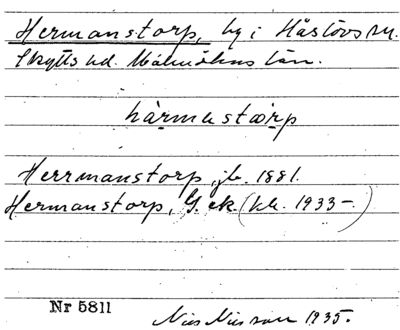 Hermanstorp, by i Håslövs sn.
Skytts hd. Malmöhus län.
hàrmastàrp
Herrmanstorp, jb. 1881.
Hermanstorp, G. ek. (kb. 1933-)
Nr 5811
Nils Nilsson 1935.